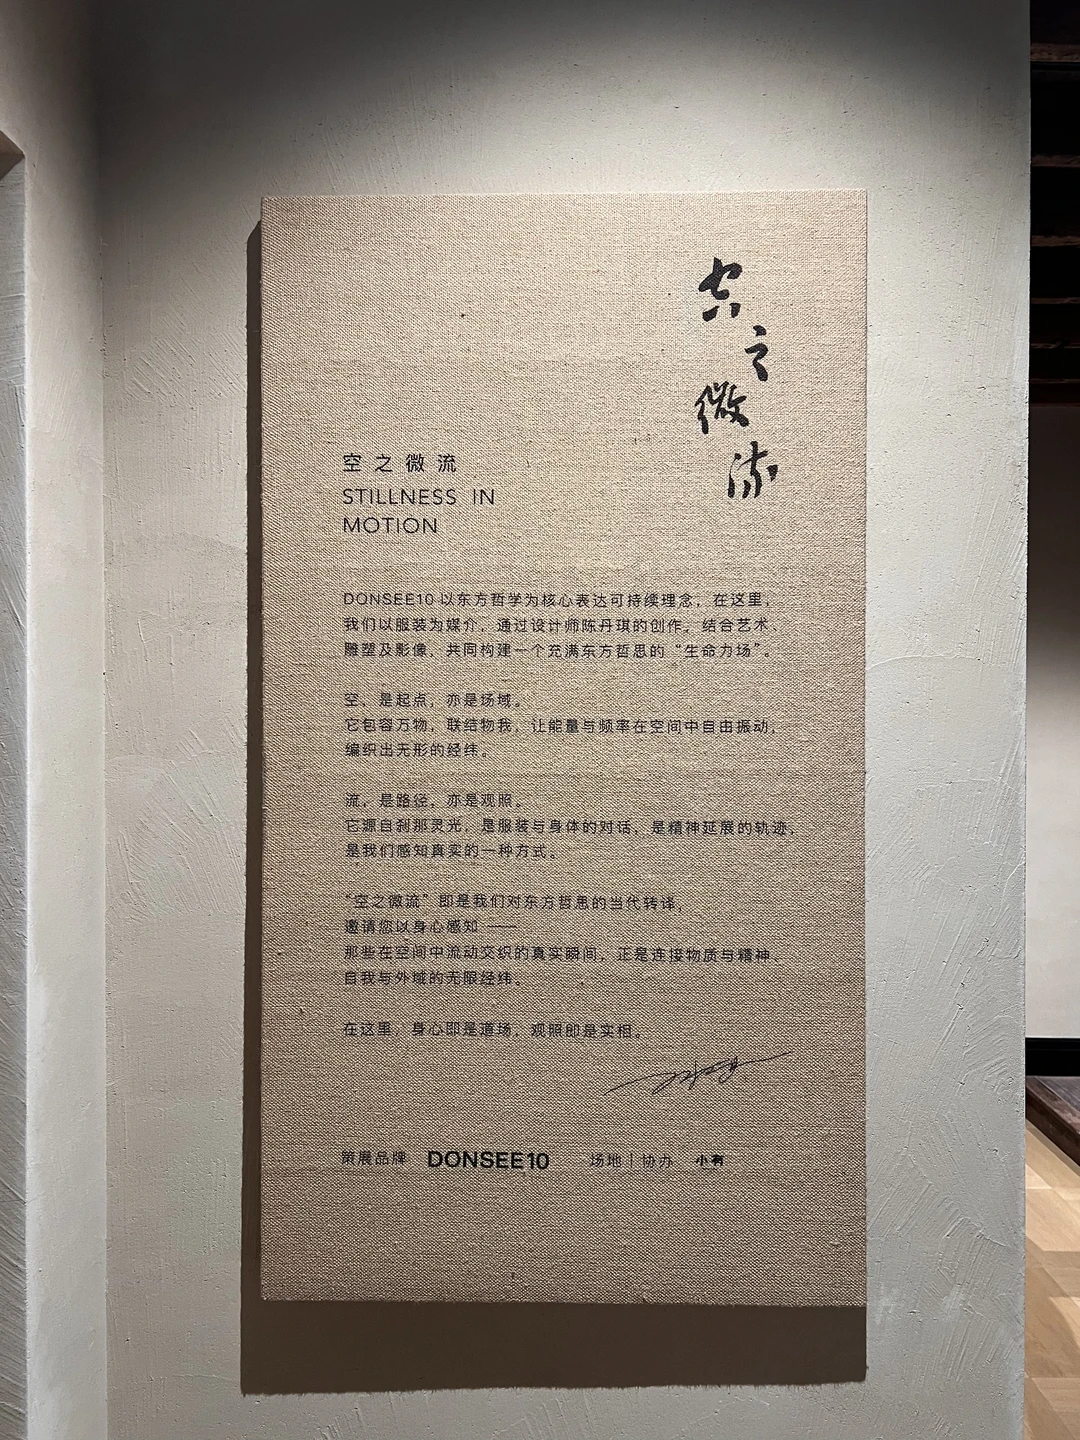 空之微流
空之微流
STILLNESS IN
MOTION
DONSEE10 以东方哲学为核心表达可持续理念，在这里，
我们以服装为媒介，通过设计师陈丹琪的创作，结合艺术、
雕塑及影像，共同构建一个充满东方哲思的“生命力场”。
空，是起点，亦是场域。
它包容万物，联结物我，让能量与频率在空间中自由振动，
编织出无形的经纬。
流，是路径，亦是观照。
它源自刹那灵光，是服装与身体的对话，是精神延展的轨迹，
是我们感知真实的一种方式。
“空之微流”即是我们对东方哲思的当代转译，
邀请您以身心感知 ——
那些在空间中流动交织的真实瞬间，正是连接物质与精神、
自我与外域的无限经纬。
在这里，身心即是道场，观照即是实相。
策展品牌 DONSEE10 场地｜协办 小有